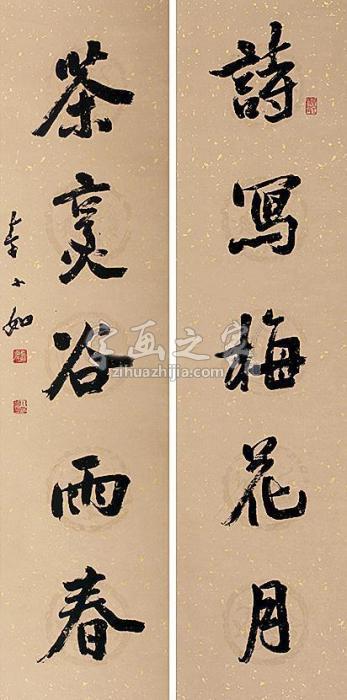 詩寫梅花月
茶烹谷雨春
李小如
字画之家
zihuazhijia.com